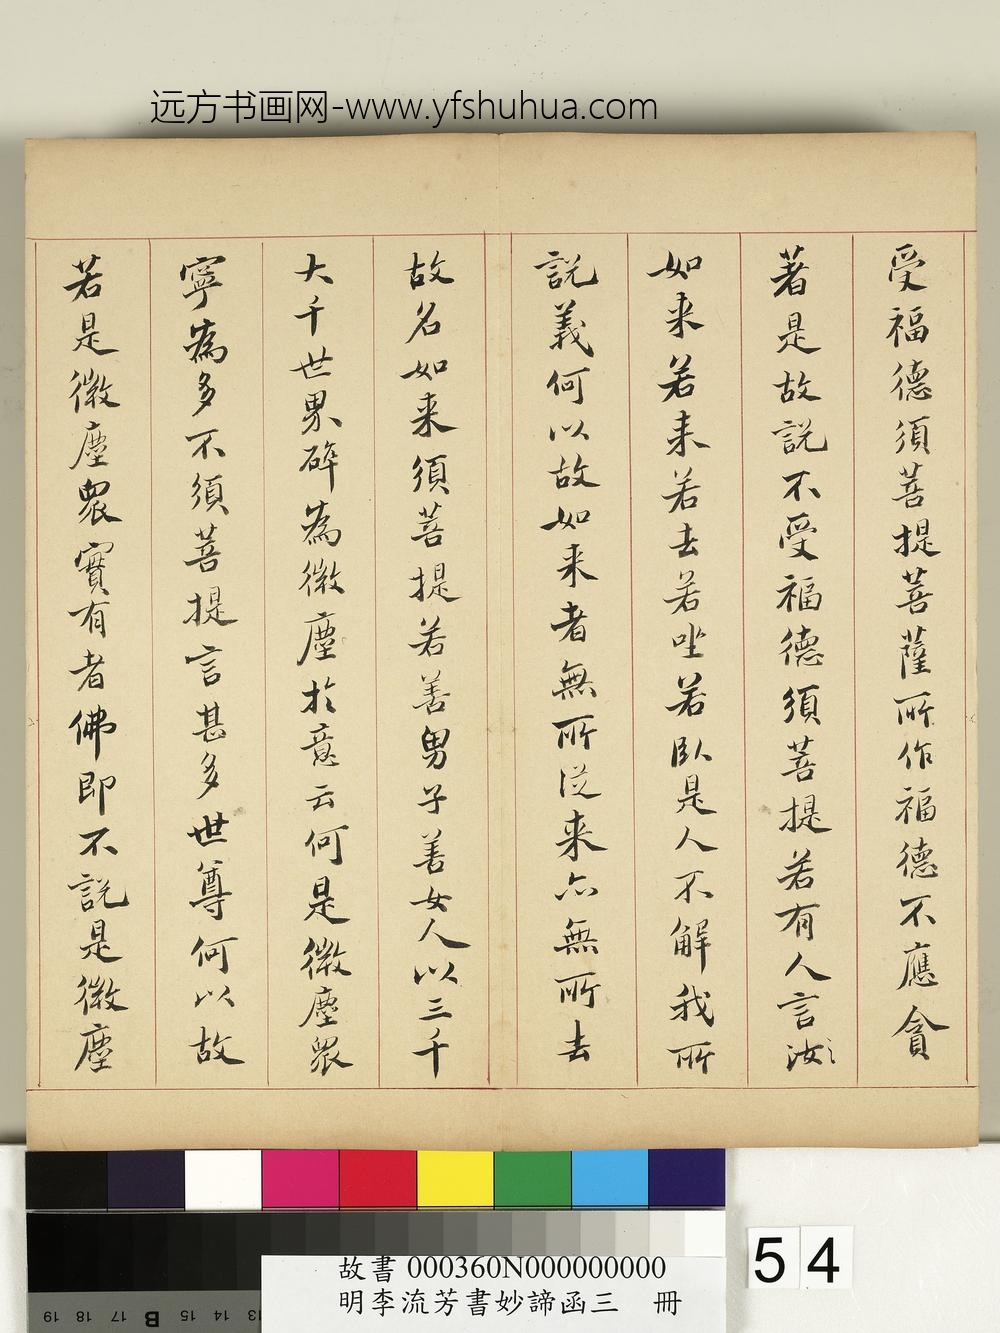 远方书画网-www.yfshuhua.com
受福德須菩提菩薩所作福德不應貪
著是故說不受福德須菩提若有人言汝
如来若来若去若坐若臥是人不解我所
說義何以故如来者無所從来亦無所去
故名如来須菩提若善男子善女人以三千
大千世界碎為微塵於意云何是微塵眾
寧為多不須菩提言甚多世尊何以故
若是微塵眾實有者佛即不說是微塵
54
故書 000360N000000000
明李流芳書妙諦函三 冊
19 18 17 B 15 14 13